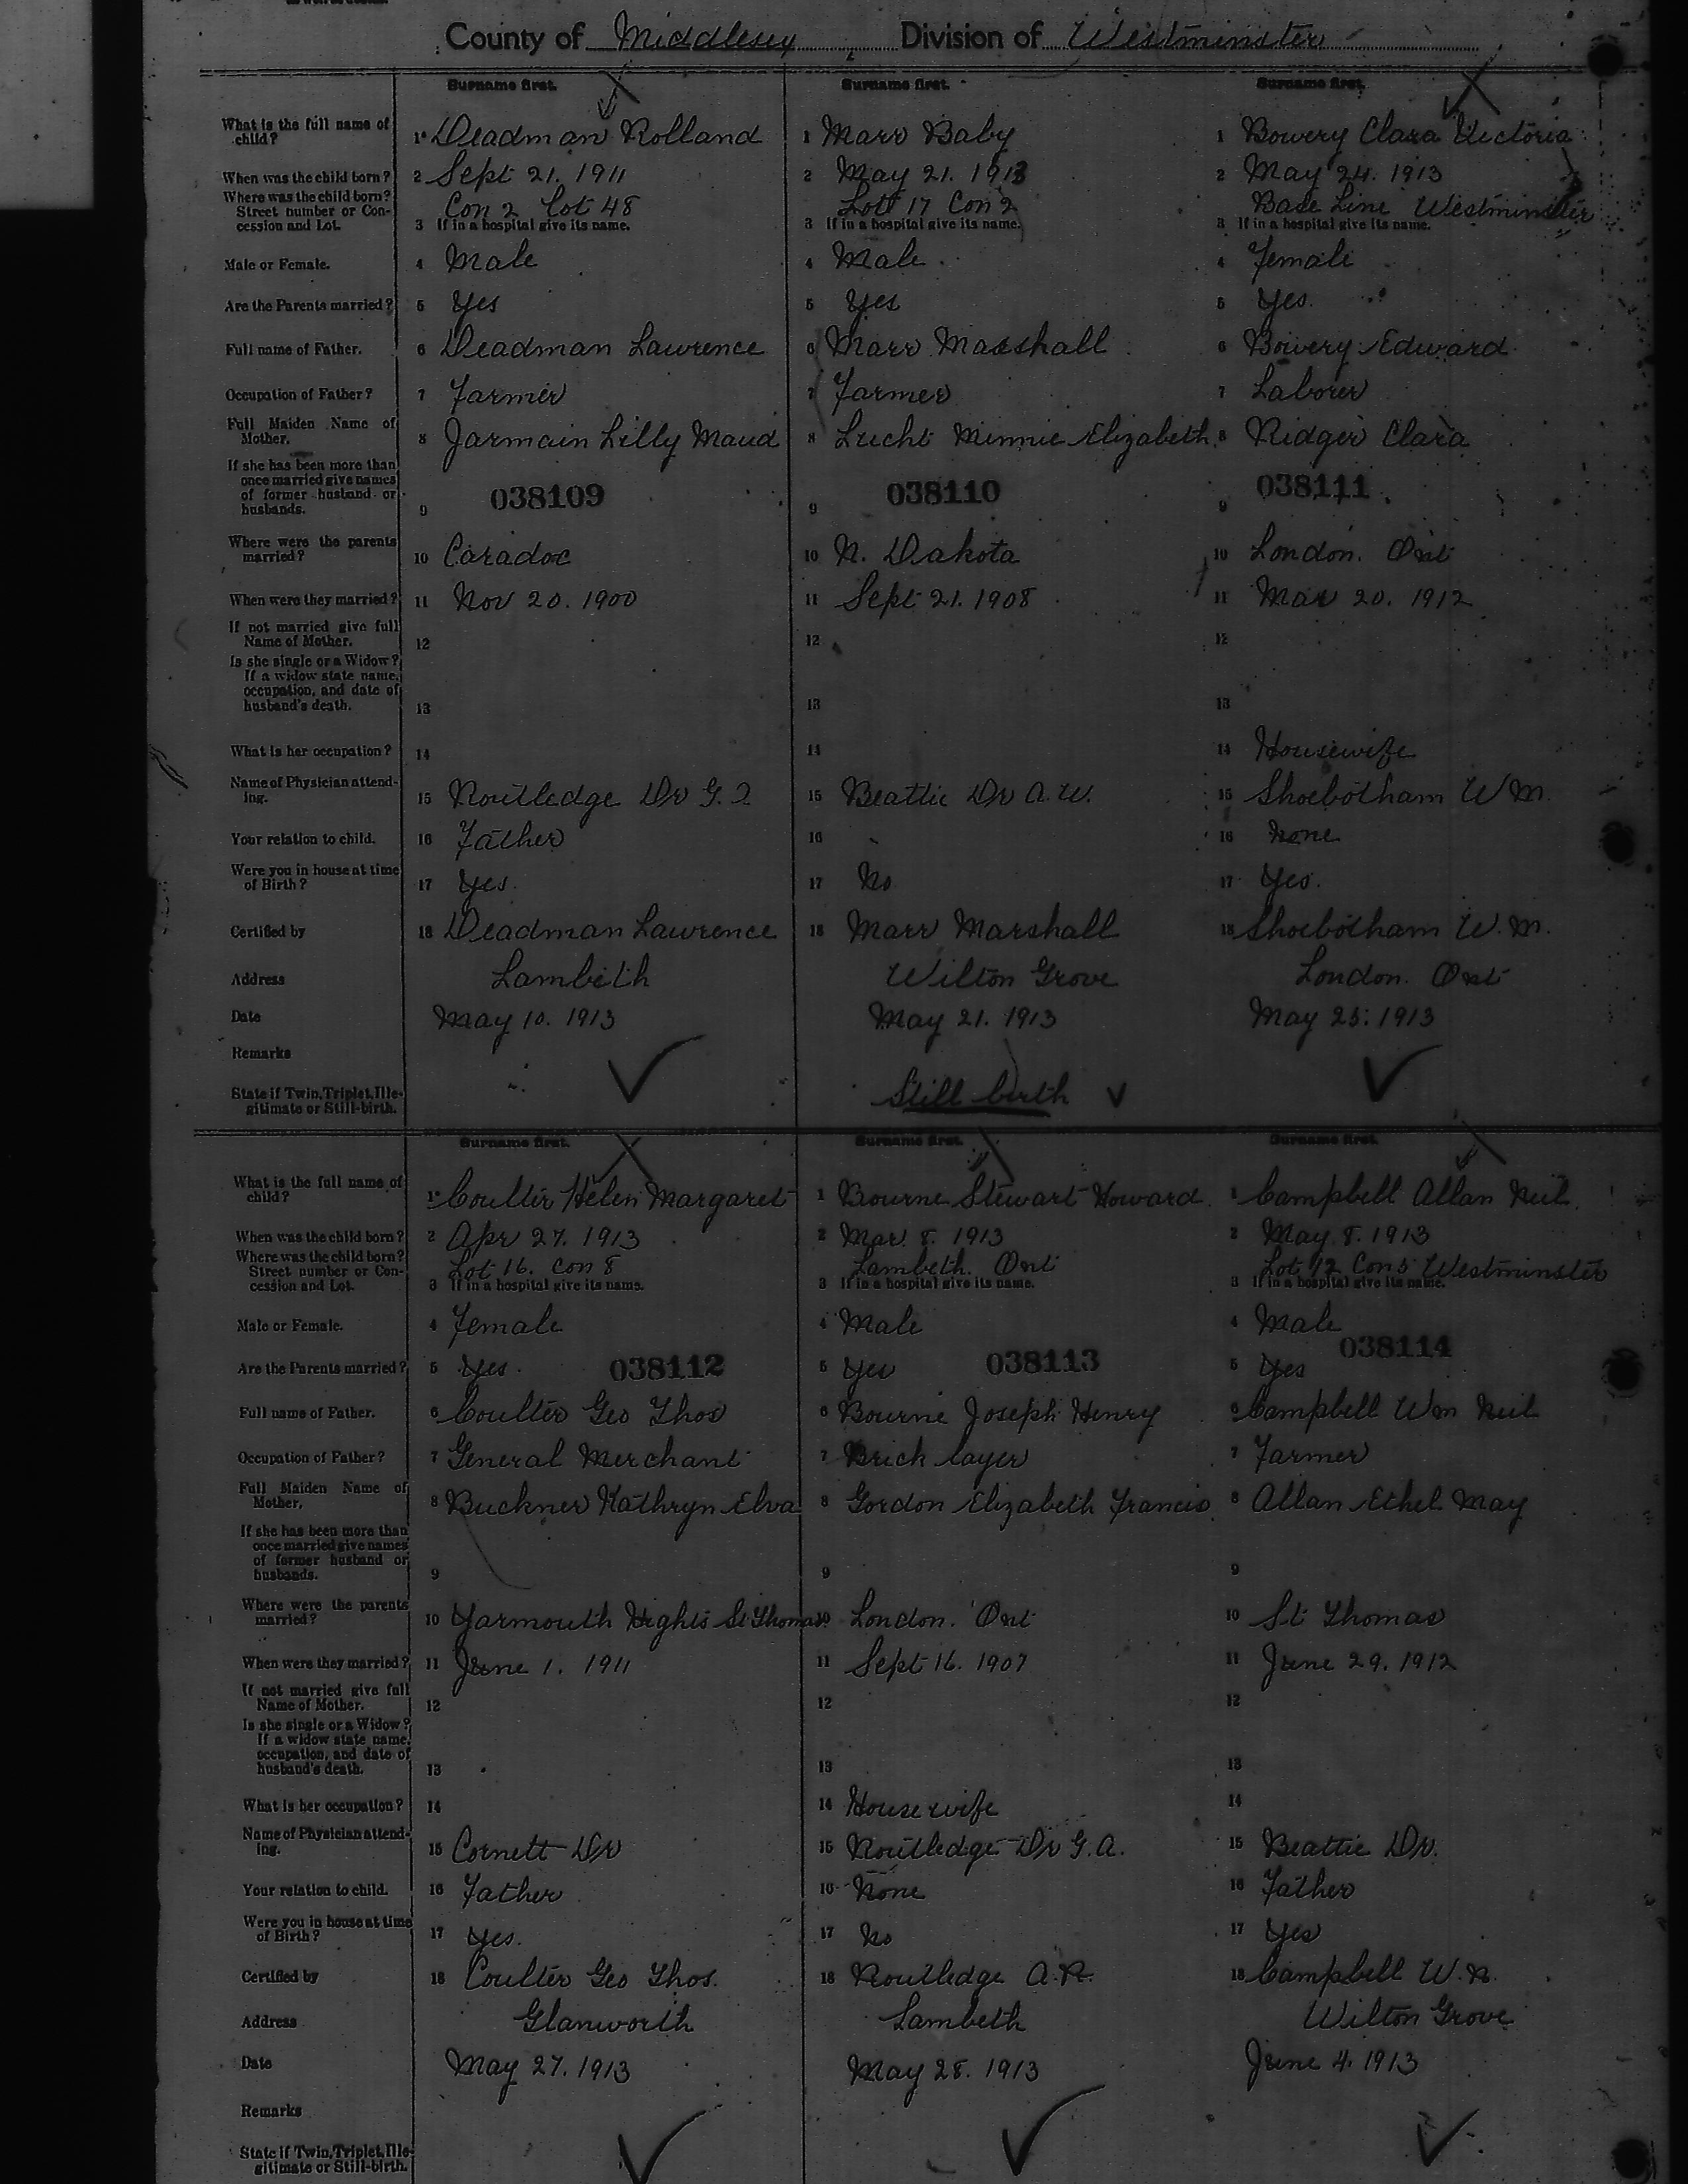 County of Middlesex Division of Westminster
Surname first. Surname first. Surname first.
What is the full name of child? 1 Deadman Rolland 1 Marr Baby 1 Bowery Clara Victoria
When was the child born? 2 Sept 21. 1911 2 May 21. 1913 2 May 24. 1913
Where was the child born? Con 2 Lot 48 Lot 17 Con 2 Base Line Westminster
Street number or Concession and Lot. 3 If in a hospital give its name. 3 If in a hospital give its name. 3 If in a hospital give its name.
Male or Female. 4 Male 4 Male 4 Female
Are the Parents married? 5 Yes 5 Yes 5 Yes.
Full name of Father. 6 Deadman Lawrence 6 Marr Marshall 6 Bowery Edward
Occupation of Father? 7 Farmer 7 Farmer 7 Laborer
Full Maiden Name of Mother. 8 Jarmain Lilly Maud 8 Lucht Minnie Elizabeth. 8 Ridger Clara
If she has been more than once married give names of former husband or husbands. 9 038109 9 038110 9 038111
Where were the parents married? 10 Caradoc 10 N. Dakota 10 London. Ont
When were they married? 11 Nov 20. 1900 11 Sept 21. 1908 11 Mar 20. 1912
If not married give full Name of Mother. 12 12 12
Is she single or a Widow? If a widow state name, occupation, and date of husband's death. 13 13 13
What is her occupation? 14 14 14 Housewife
Name of Physician attending. 15 Routledge Dr G. 15 Beattie Dr A. W. 15 Shoebotham W M.
Your relation to child. 16 Father 16 16 None
Were you in house at time of Birth? 17 Yes. 17 No 17 Yes.
Certified by 18 Deadman Lawrence 18 Marr Marshall 18 Shoebotham W. M.
Address Lambeth Wilton Grove London. Ont
Date May 10. 1913 May 21. 1913 May 25. 1913
Remarks
State if Twin, Triplet, Illegitimate or Still-birth. Still birth
Surname first. Surname first. Surname first.
What is the full name of child? 1 Coulter Helen Margaret 1 Bourne Stewart Howard 1 Campbell Allan Neil
When was the child born? 2 Apr 27. 1913 2 Mar. 8. 1913 2 May 8. 1913
Where was the child born? Lot 16. Con 8 Lambeth. Ont Lot 12 Con 5 Westminster
Street number or Concession and Lot. 3 If in a hospital give its name. 3 If in a hospital give its name. 3 If in a hospital give its name.
Male or Female. 4 Female 4 Male 4 Male
Are the Parents married? 5 Yes. 038112 5 Yes 038113 5 Yes 038114
Full name of Father. 6 Coulter Geo Thos 6 Bourne Joseph Henry 6 Campbell Wm Neil
Occupation of Father? 7 General Merchant 7 Brick layer 7 Farmer
Full Maiden Name of Mother. 8 Buckner Kathryn Elva 8 Gordon Elizabeth Francis 8 Allan Ethel May
If she has been more than once married give names of former husband or husbands. 9 9 9
Where were the parents married? 10 Yarmouth Hights St Thomas 10 London. Ont 10 St Thomas
When were they married? 11 June 1. 1911 11 Sept 16. 1907 11 June 29. 1912
If not married give full Name of Mother. 12 12 12
Is she single or a Widow? If a widow state name, occupation, and date of husband's death. 13 13 13
What is her occupation? 14 14 Housewife 14
Name of Physician attending. 15 Cornett Dr 15 Routledge Dr G. A. 15 Beattie Dr.
Your relation to child. 16 Father 16 None 16 Father
Were you in house at time of Birth? 17 Yes. 17 No 17 Yes
Certified by 18 Coulter Geo Thos. 18 Routledge A. R. 18 Campbell W. N.
Address Glanworth Lambeth Wilton Grove
Date May 27. 1913 May 28. 1913 June 4. 1913
Remarks
State if Twin, Triplet, Illegitimate or Still-birth.